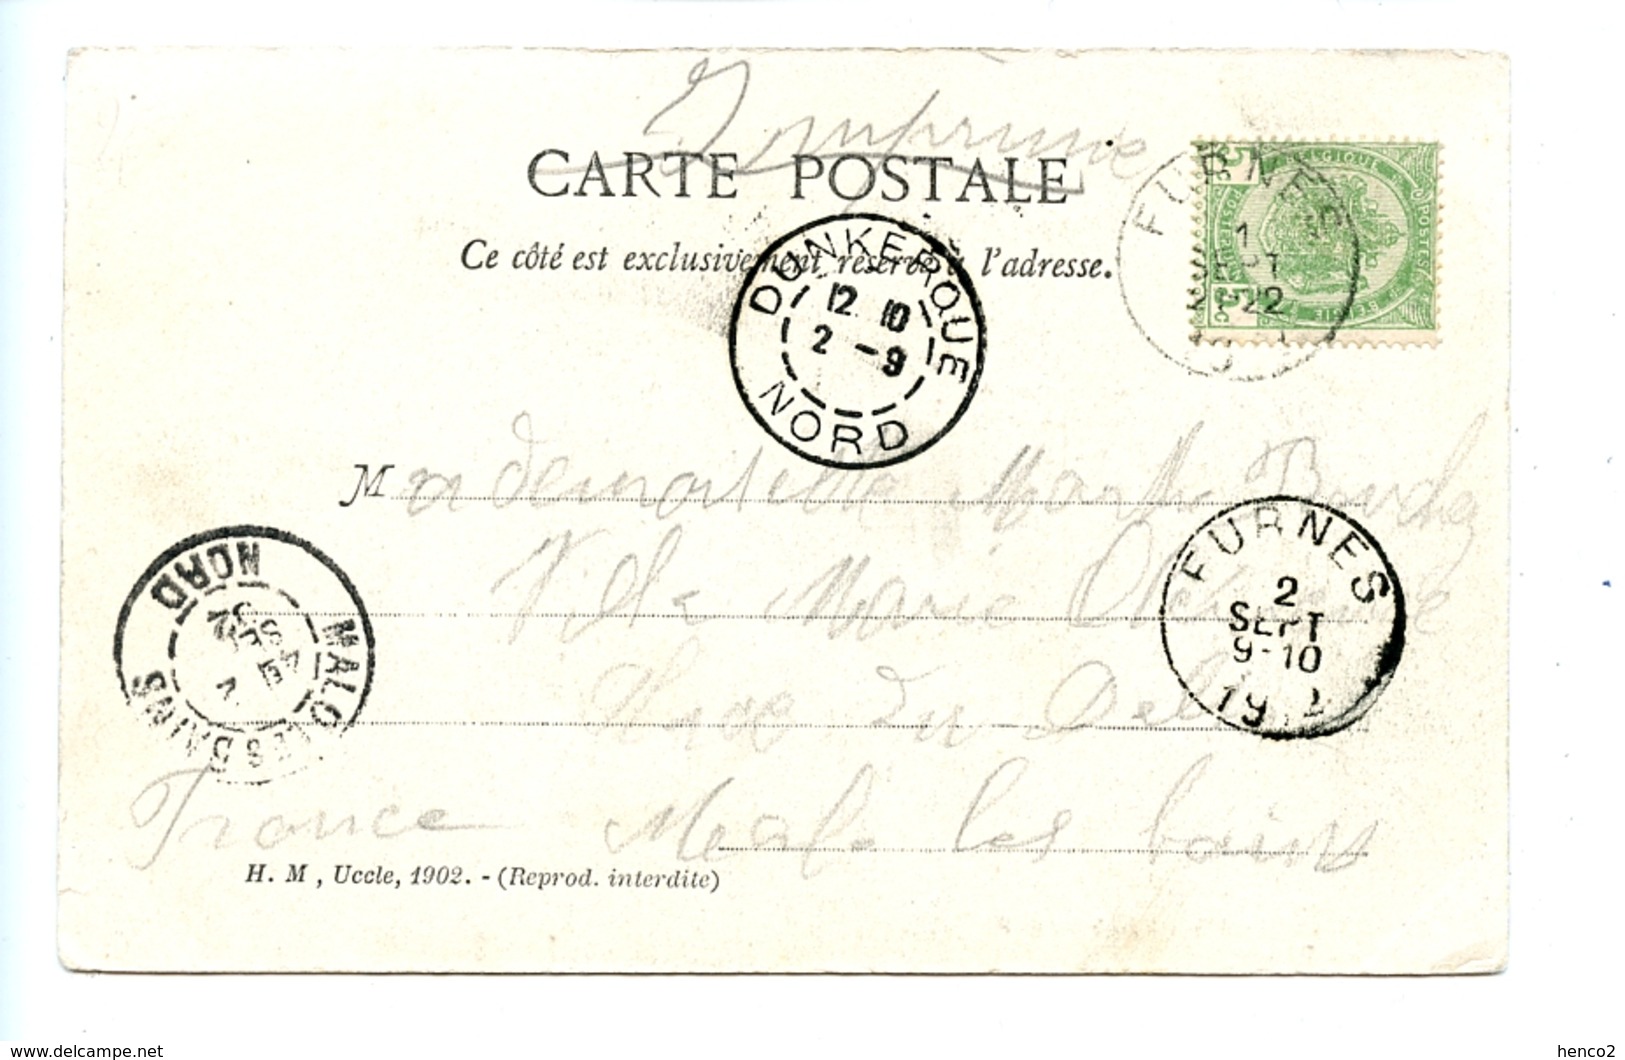 Imprimé
CARTE POSTALE
Ce côté est exclusivement réservé à l'adresse.
BELGIQUE
POSTES
FURNES
1
SEPT
21-22
DUNKERQUE
12 10
2 -9
NORD
Mademoiselle Marthe
Villa Marie
FURNES
2
SEPT
9-10
19
NORD
MALO LES BAINS
Rue du
France Malo les bains
H. M, Uccle, 1902. - (Reprod. interdite)
delcampe.net
henco2